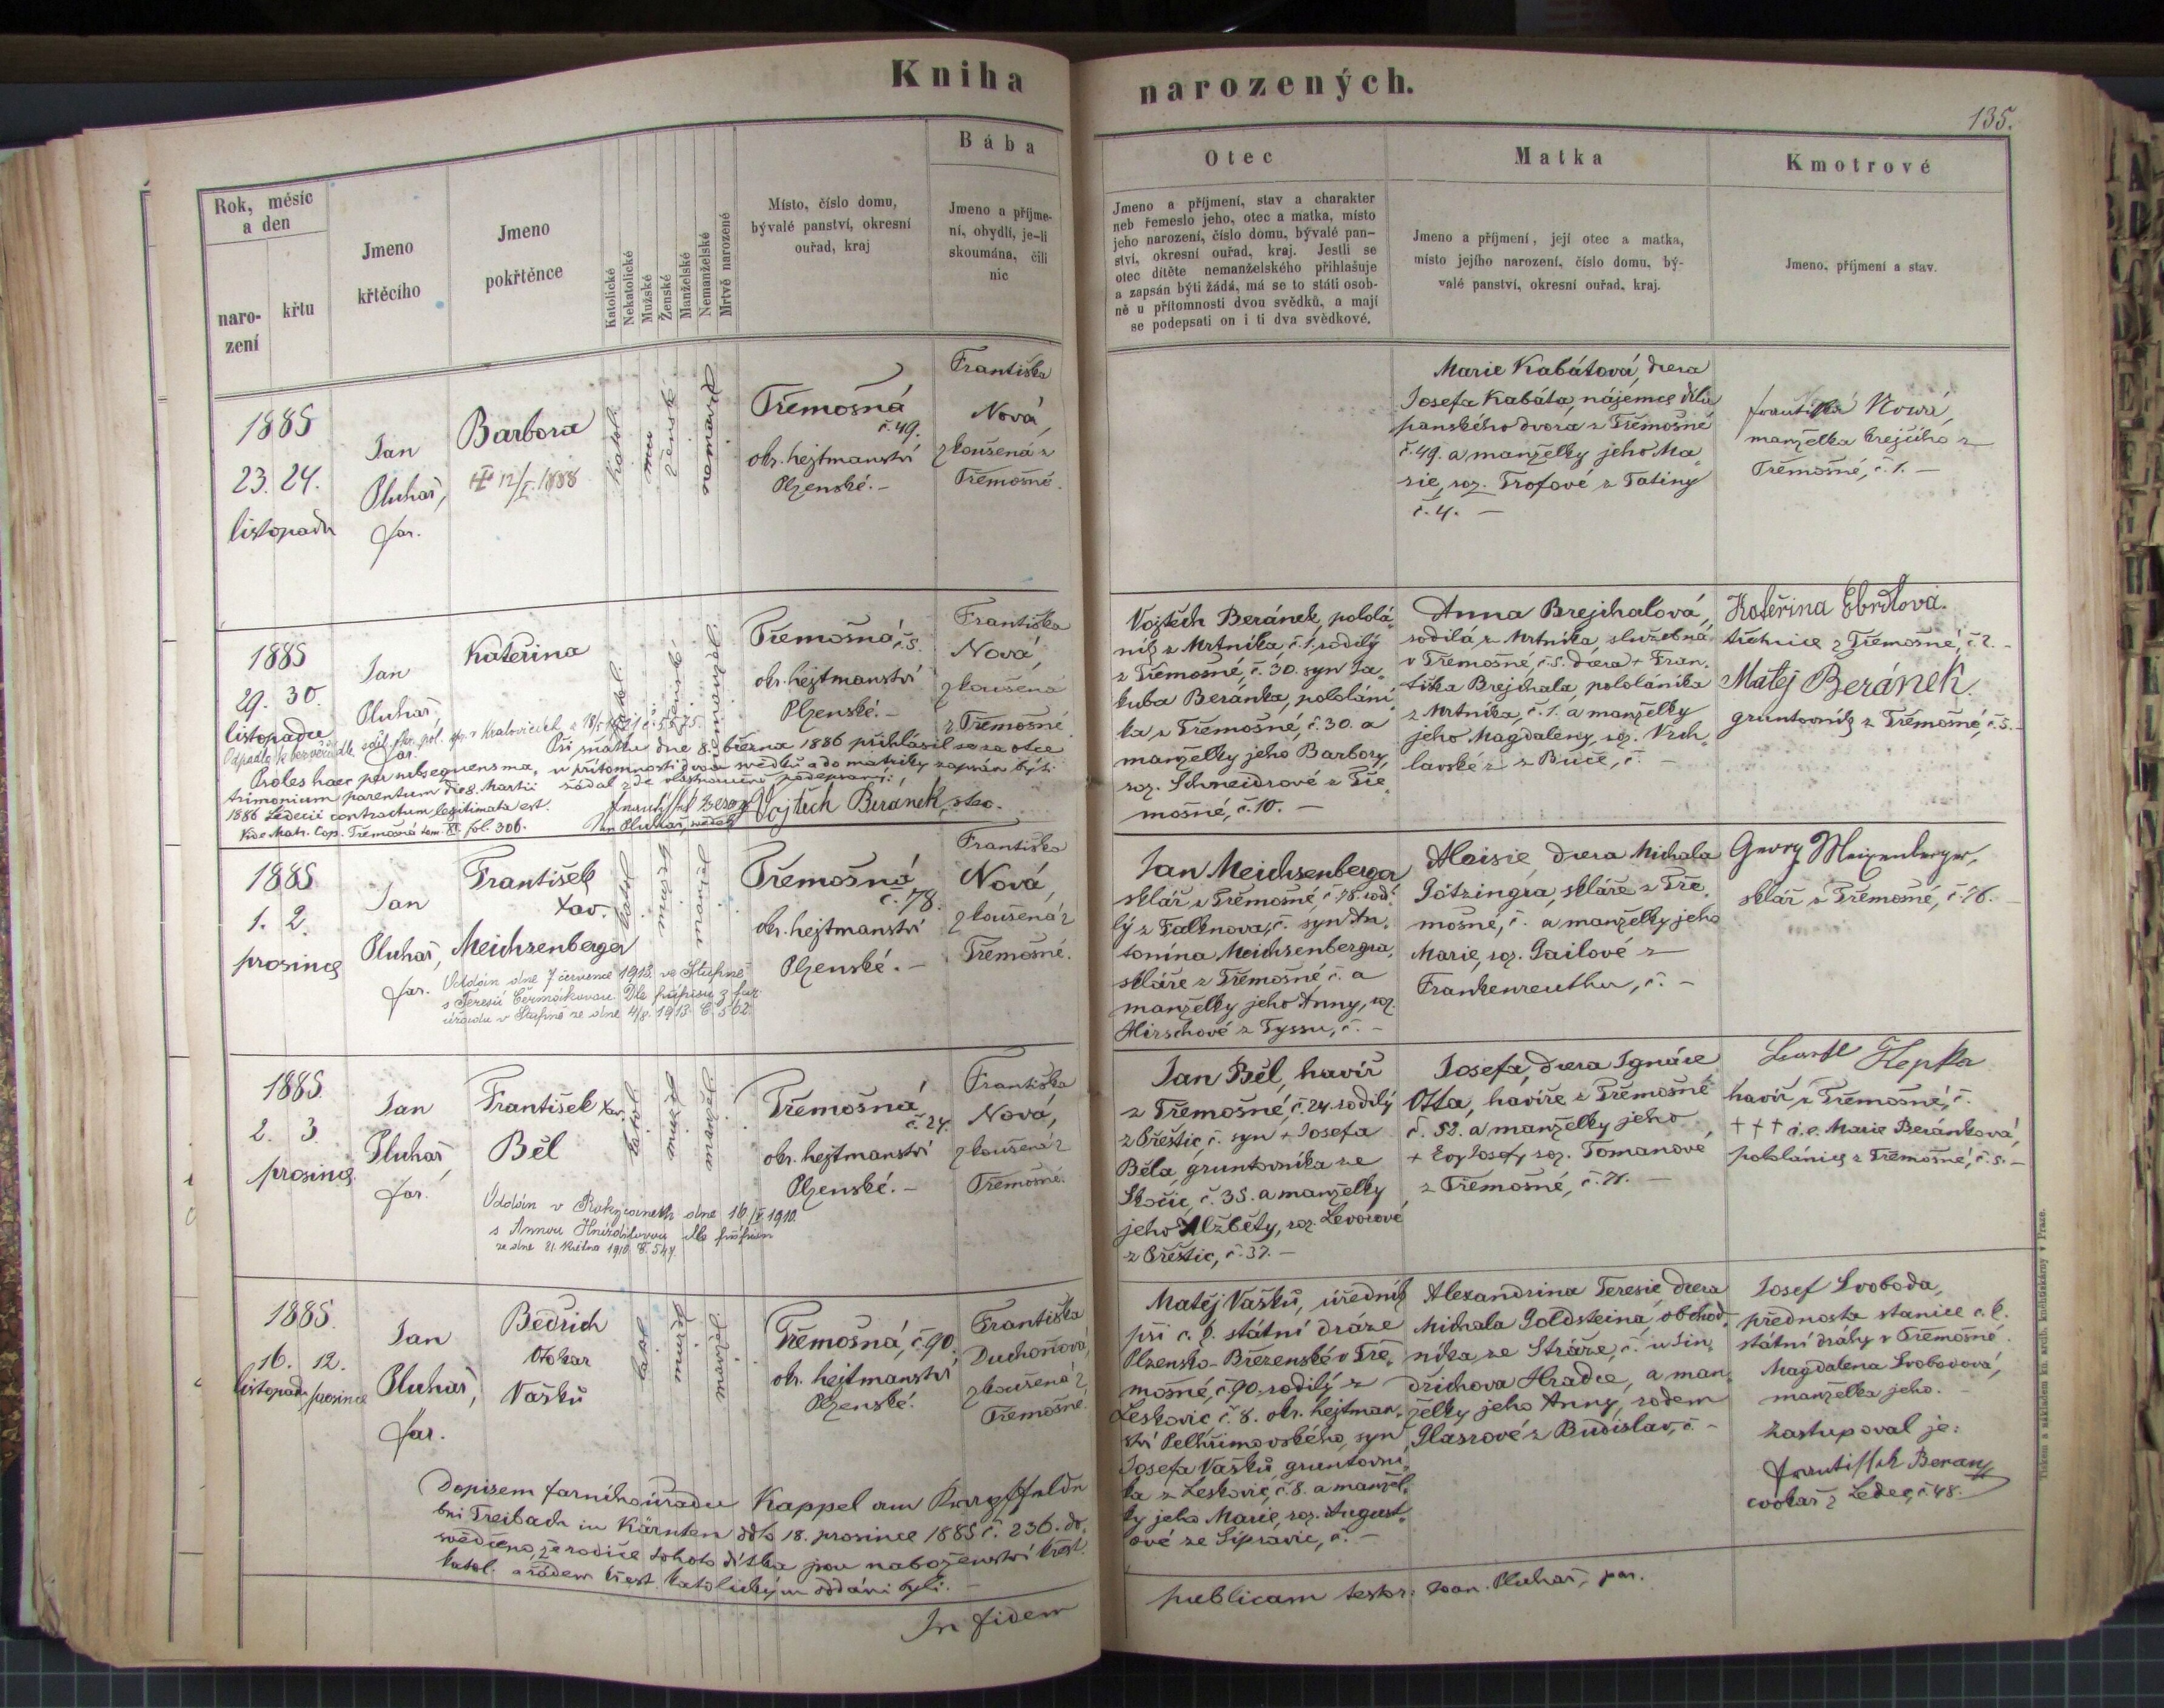 Kniha narozených.
135.
Rok, měsíc
a den
naro-
zení
křtu
Jmeno
křtěcího
Jmeno
pokřtěnce
Katolické
Nekatolické
Mužské
Ženské
Manželské
Nemanželské
Mrtvě narozené
Místo, číslo domu,
bývalé panství, okresní
ouřad, kraj
Bába
Jmeno a příjme-
ní, obydlí, je-li
skoumána, čili
nic
Otec
Jmeno a příjmení, stav a charakter
neb řemeslo jeho, otec a matka, místo
jeho narození, číslo domu, bývalé pan-
ství, okresní ouřad, kraj. Jestli se
otec dítěte nemanželského přihlašuje
a zapsán býti žádá, má se to státi osob-
ně u přítomnosti dvou svědků, a mají
se podepsati on i ti dva svědkové.
Matka
Jmeno a příjmení, její otec a matka,
místo jejího narození, číslo domu, bý-
valé panství, okresní ouřad, kraj.
Kmotrové
Jmeno, příjmení a stav.
1885
23. 24.
listopadu
Jan
Pluhař,
far.
Barbora
12/I. 1888
katol.
ženské
nemanž
Třemošná
č. 49.
okr. hejtmanství
Plzenské. –
Františka
Nová,
zkoušená z
Třemošné.
Marie Kabátová, dcera
Josefa Kabáta, nájemce dílu
panského dvora z Třemošné
č. 49. a manželky jeho Ma-
rie, roz. Trofové z Tatiny
č. 4. –
Františka Nová,
manželka krejčího z
Třemošné, č. 1. –
1885
29. 30.
listopadu
Jan
Pluhař,
far.
Kateřina
Třemošná, č. 5.
okr. hejtmanství
Plzenské. –
Františka
Nová,
zkoušená
z Třemošné
Při smatku dne 8. března 1886 přihlásil se za otce
v přítomnosti dvou svědků a do matriky zapsán býti
žádal zde vlastnoručně podepsaný:
Proles haec per subsequens ma-
trimonium parentum die 8. Martii
1886 Ledecii contractum legitimata est.
Vide Matr. Cop. Třemošná tom. XI. fol. 306.
Jan Pluhař, svědek
Vojtěch Beránek, otec.
Vojtěch Beránek, pololá-
ník z Mrtníka, č. 1. rodilý
z Třemošné, č. 30. syn Ja-
kuba Beránka, pololání-
ka z Třemošné, č. 30. a
manželky jeho Barbory,
roz. Schneidrové z Tře-
mošné, č. 10. –
Anna Brejchalová,
rodilá z Mrtníka, služebná
v Třemošné, č. 5. dcera + Fran-
tiška Brejchala, pololáníka
z Mrtníka, č. 1. a manželky
jeho Magdaleny, roz. Vrch-
lavské z Buče, č. –
Kateřina Ebrdlová.
z Třemošné, č. 2. –
Matej Beránek.
gruntovník z Třemošné, č. 5. –
1885
1. 2.
prosince
Jan
Pluhař,
far.
František
Xav.
Meichsenberger
Oddán dne 7 července 1913 ve Stupně
s Terezií Čermákovou. Dle přípisu z far.
úřadu v Stupně ze dne 4/8. 1913. Č. 562.
katol.
mužské
Třemošná
č. 78.
okr. hejtmanství
Plzenské. –
Františka
Nová,
zkoušená z
Třemošné.
Jan Meichsenberger
sklář z Třemošné, č. 78. rodi-
lý z Falknova, č. syn An-
tonína Meichsenbergra,
skláře z Třemošné, č. a
manželky jeho Anny, roz.
Hirschové z Tyssu, č. –
Aloisie dcera Michala
Götzingra, skláře z Tře-
mošné, č. a manželky jeho
Marie, roz. Gailové z
Frankenreuthu, č. –
Georg Meixenberger,
sklář z Třemošné, č. 76. –
1885.
2. 3.
prosince
Jan
Pluhař,
far.
František Xav.
Běl
Oddán v Rokycanech dne 16/V 1910.
s Annou Hnízdilovou dle přípisu
ze dne 21. května 1910. Č. 547.
katol.
mužské
Třemošná
č. 24.
okr. hejtmanství
Plzenské. –
Františka
Nová,
zkoušená z
Třemošné.
Jan Běl, havíř
z Třemošné, č. 24. rodilý
z Přeštic, č. syn + Josefa
Běla, gruntovníka ze
Skočic, č. 35. a manželky
jeho Alžběty, roz. Levorové
z Přeštic, č. 37. –
Josefa, dcera Ignáce
Otta, havíře z Třemošné
č. 52. a manželky jeho
roz. Tomanové
z Třemošné, č. 71. –
havíř z Třemošné, č.
+ + + i. e. Marie Beránková,
pololánice z Třemošné, č. 5. –
1885.
16. 12.
listopadu prosince
Jan
Pluhař,
far.
Bedřich
Otokar
Vašků
katol.
mužsk
Třemošná, č. 90.
okr. hejtmanství
Plzenské.
Františka
Duchoňová,
zkoušená z
Třemošné.
Matěj Vašků, úředník
při c. k. státní dráze
Plzensko-Březenské v Tře-
mošné, č. 90. rodilý z
Leskovic, č. 8. okr. hejtman-
ství Pelhřimovského, syn
Josefa Vašků gruntovní-
ka z Leskovic, č. 8. a manžel-
ky jeho Marie, roz. August-
ové ze Šipravic, č. –
Alexandrina Teresie, dcera
Michala Goldsteina, obchod-
níka ze Stráže, č. u Jin-
dřichova Hradce, a man-
želky jeho Anny, rodem
Glásrové z Budislav, č. –
Josef Svoboda,
přednosta stanice c. k.
státní dráhy v Třemošné.
Magdalena Svobodová,
manželka jeho. –
Zastupoval je:
Beran
cvokař z Ledec, č. 48.
Dopisem farního úřadu Kappel am Krappffelde
bei Treibach in Kärnten ddto 18. prosince 1885 č. 236. do-
svědčeno, že rodiče tohoto dítka jsou náboženství křest.
katol. a řádem křest. katolickým oddáni byli. –
In fidem publicam testor: Joan. Pluhař, par.
Tiskem a nákladem kn. arcib. knihtiskárny v Praze.